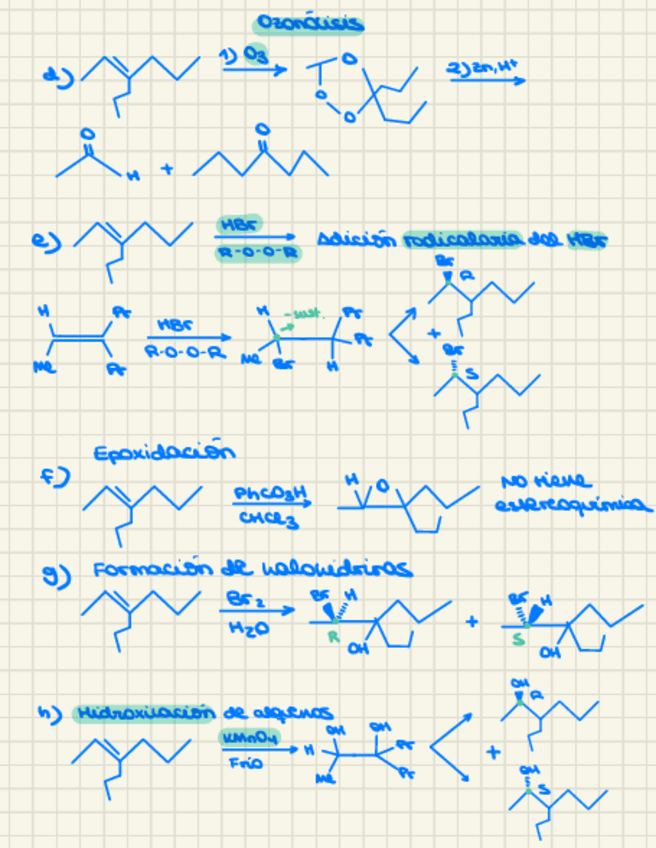 Ozonólisis
d) 1) O3 O O O 2) Zn, H+
O H + O
e) HBr R-O-O-R Adición radicalaria del HBr
Br R
H Pr Me Pr HBr R-O-O-R H -sust. Pr Pr Me Br H +
Br S
Epoxidación
f) PhCO3H CHCl3 H O NO tiene
estereoquímica
g) Formación de halohidrinas
Br2 H2O Br H R OH + Br H S OH
h) Hidroxilación de alquenos
KMnO4 Frío H OH OH Pr Pr Me OH R
+
OH S